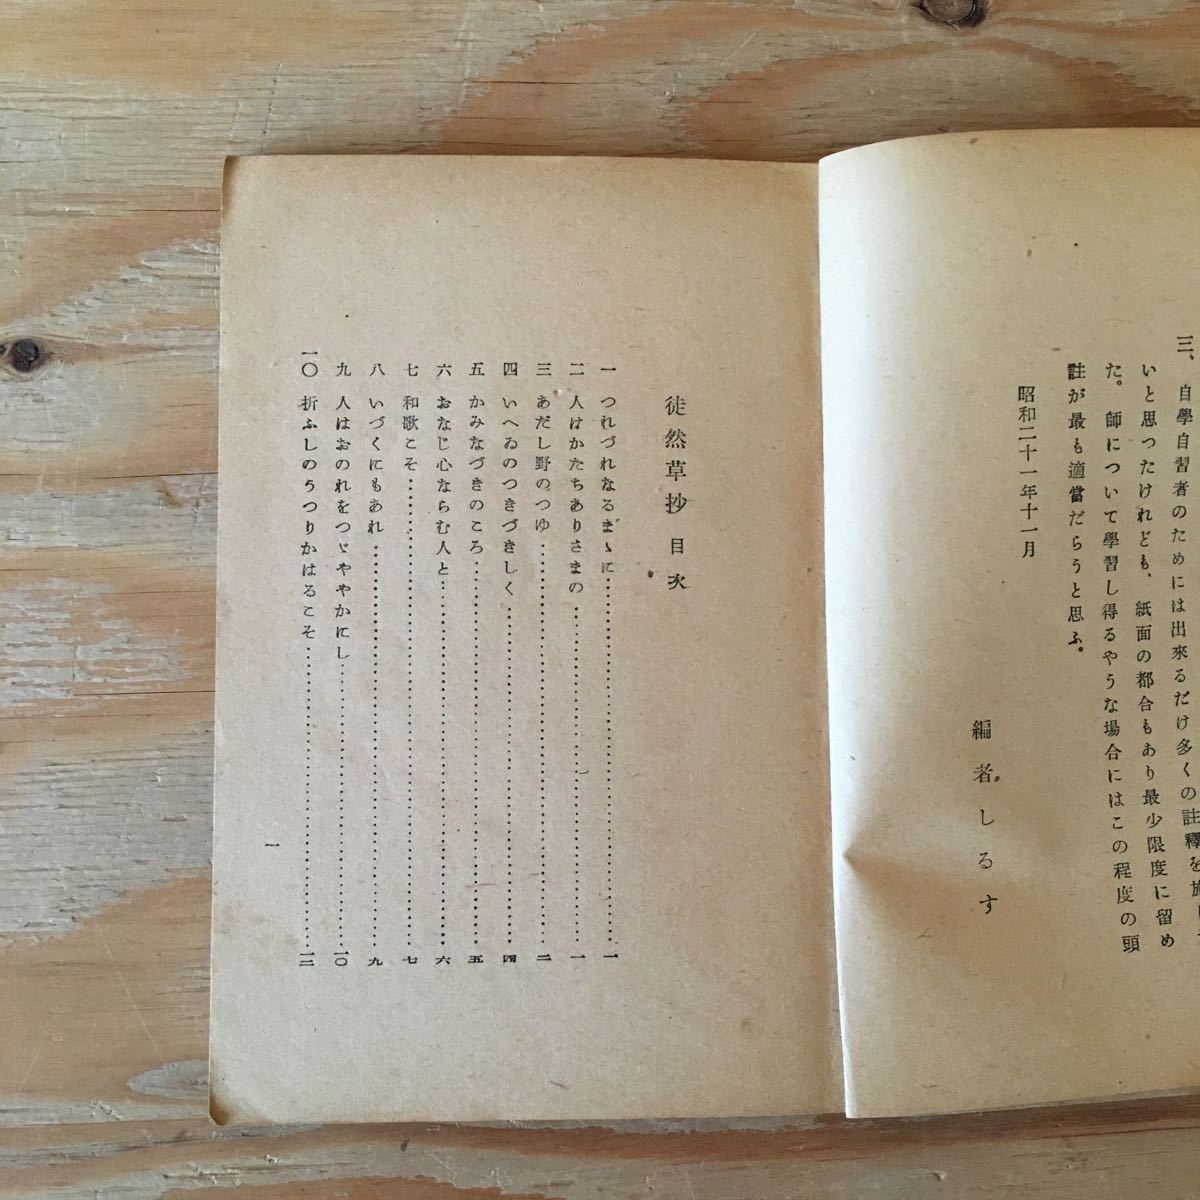 三、自學自習者のためには出來るだけ多くの註釋を施
いと思つたけれども、紙面の都合もあり最少限度に留め
た。師について學習し得るやうな場合にはこの程度の頭
註が最も適當だらうと思ふ。
昭和二十一年十一月
編者しるす
徒然草抄 目次
一 つれづれなるまゝに……一
二 人はかたちありさまの……一
三 あだし野のつゆ……二
四 いへゐのつきづきしく……四
五 かみなづきのころ……五
六 おなじ心ならむ人と……六
七 和歌こそ……七
八 いづくにもあれ……九
九 人はおのれをつゞやかにし……一〇
一〇 折ふしのうつりかはるこそ……一二
一